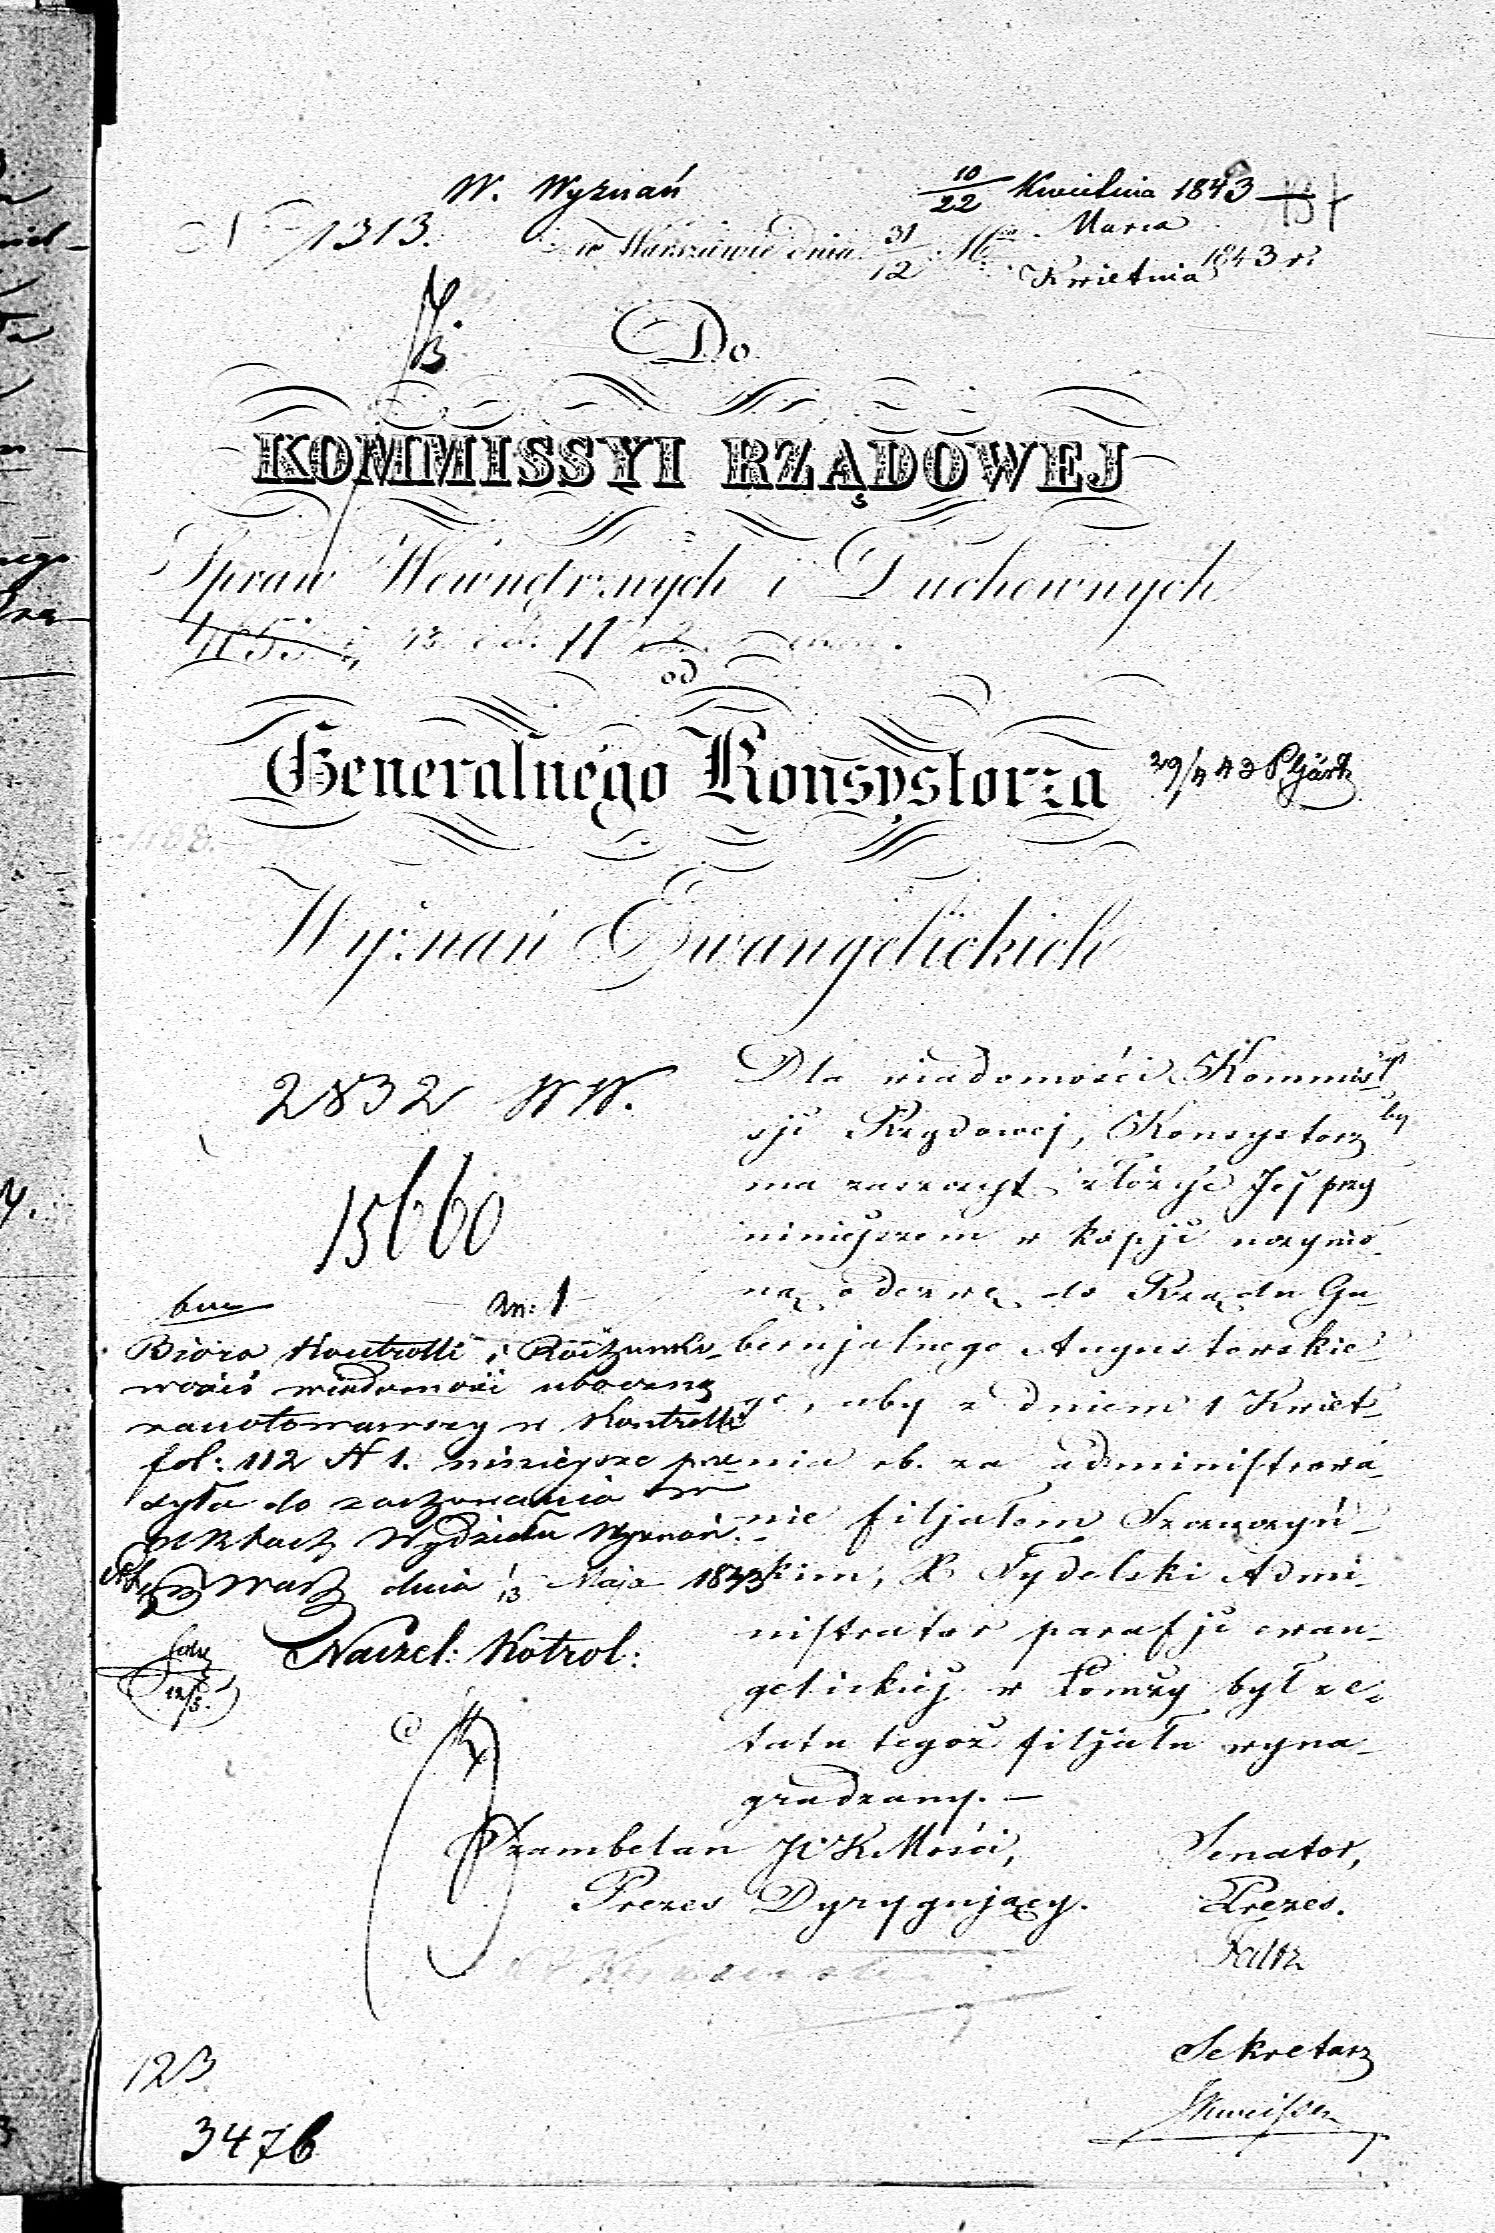 W. Wyznań
10/22 Kwietnia 1843
N 1313.
w Warszawie dnia 31/12 Marca/Kwietnia 1843 r.
Do
KOMMISSYI RZĄDOWEJ
Spraw Wewnętrznych i Duchownych
od
Generalnego Konsystorza
29/4 43
Wyznań Ewangelickich
2832 WW.
15660
Dla wiadomości Kommis-
syi Rządowej, Konsystorz
ma zaszczyt złożyć Jej przy
niniejszem w kopji uczynio-
ną odezwę do Rządu Gu-
bernjalnego Augustowskie-
go, aby z dniem 1 Kwiet-
nia rb. za administrowa-
nie filjałem Szczuczyń-
skim, X Tydelski Admi-
nistrator parafji ewan-
gelickiej w Łomży był z e-
tatu tegoż filjału wyna-
gradzany. —
An: 1
Bióro Kontrolli i Rachunko-
wości wiadomość uboczną
zanotowawszy w Kontrolli
fol: 112 N 1. niniejsze prze-
syła do zachowania w
aktach Wydziału Wyznań.
Warsz dnia 1/13 Maja 1843
Naczel: Kotrol:
Szambelan JCKMości,
Prezes Dyrygujący.
Senator,
Prezes.
Sekretarz
123
3476